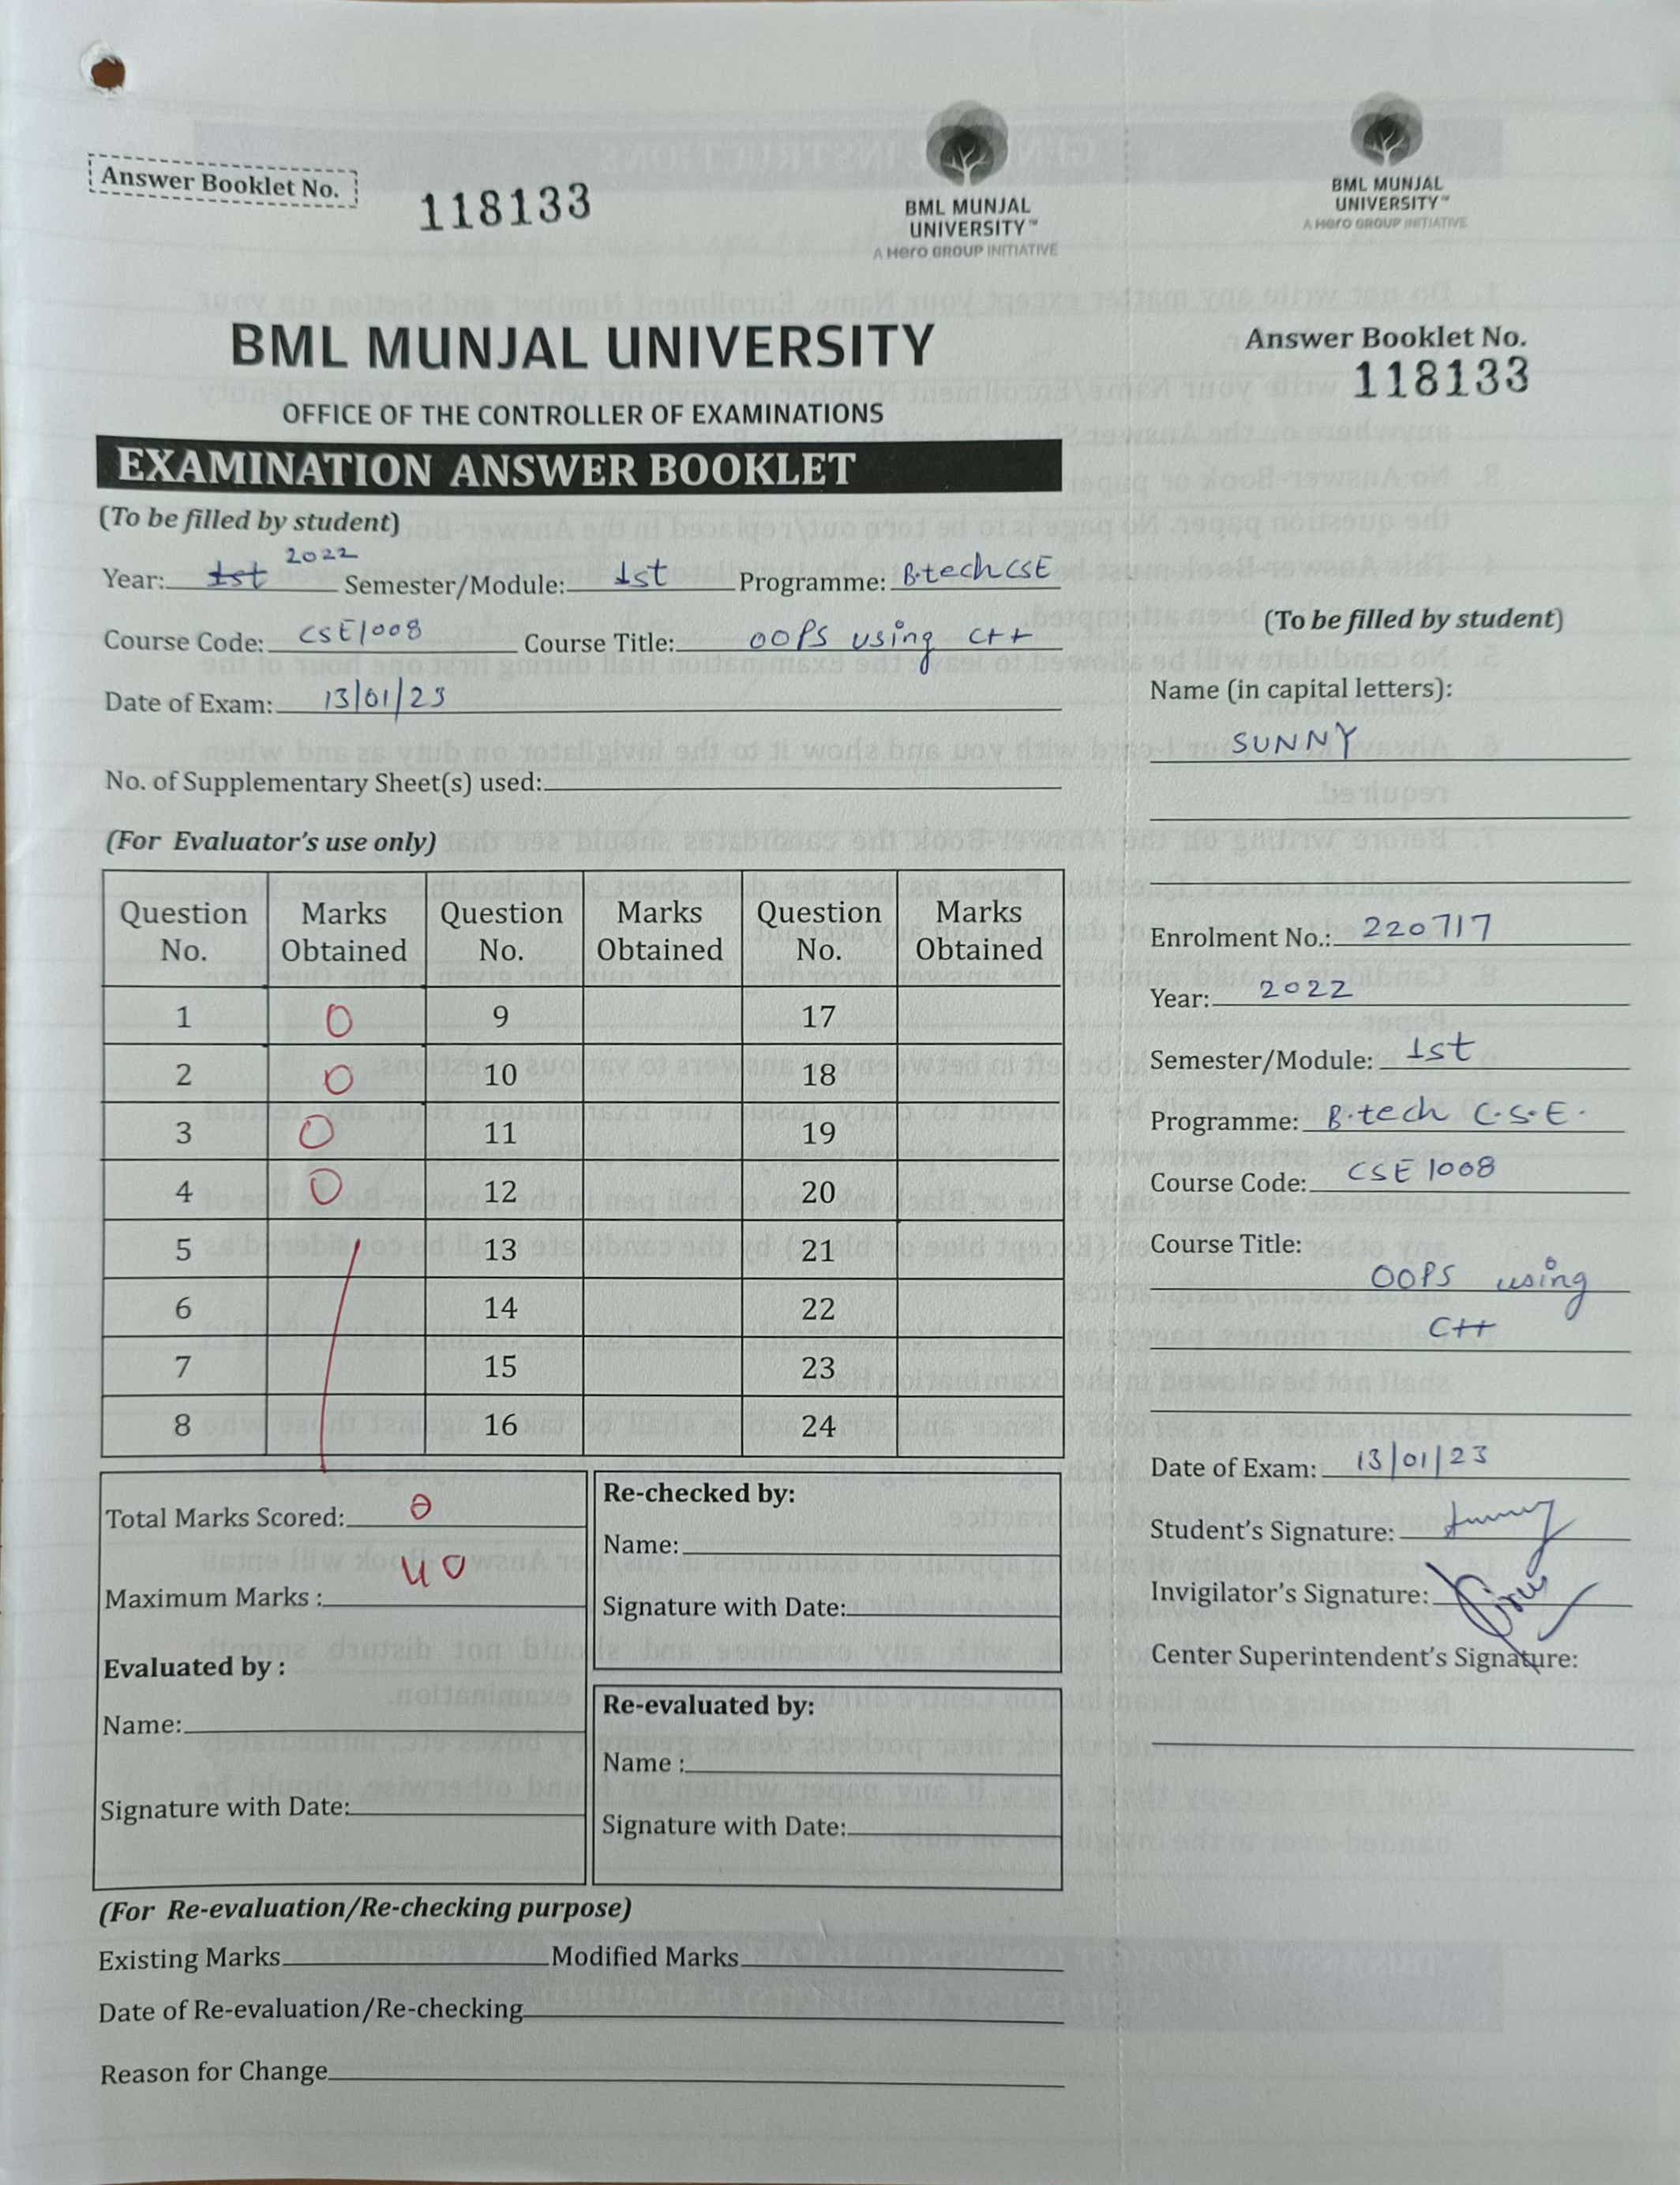 Answer Booklet No.
118133
BML MUNJAL
UNIVERSITY™
A Hero GROUP INITIATIVE
BML MUNJAL UNIVERSITY
OFFICE OF THE CONTROLLER OF EXAMINATIONS
EXAMINATION ANSWER BOOKLET
(To be filled by student)
2022
Year: 1st Semester/Module: 1st Programme: B.tech CSE
Course Code: CSE1008 Course Title: OOPS using C++
Date of Exam: 13/01/23
No. of Supplementary Sheet(s) used:
(For Evaluator's use only)
Question No. Marks Obtained Question No. Marks Obtained Question No. Marks Obtained
1 0 9 17
2 0 10 18
3 0 11 19
4 0 12 20
5 13 21
6 14 22
7 15 23
8 16 24
Total Marks Scored: 0
Maximum Marks : 40
Evaluated by :
Name:
Signature with Date:
Re-checked by:
Name:
Signature with Date:
Re-evaluated by:
Name :
Signature with Date:
(For Re-evaluation/Re-checking purpose)
Existing Marks Modified Marks
Date of Re-evaluation/Re-checking
Reason for Change
BML MUNJAL
UNIVERSITY™
A Hero GROUP INITIATIVE
Answer Booklet No.
118133
(To be filled by student)
Name (in capital letters):
SUNNY
Enrolment No.: 220717
Year: 2022
Semester/Module: 1st
Programme: B.tech C.S.E.
Course Code: CSE 1008
Course Title:
OOPS using
C++
Date of Exam: 13/01/23
Student's Signature: Sunny
Invigilator's Signature:
Center Superintendent's Signature: